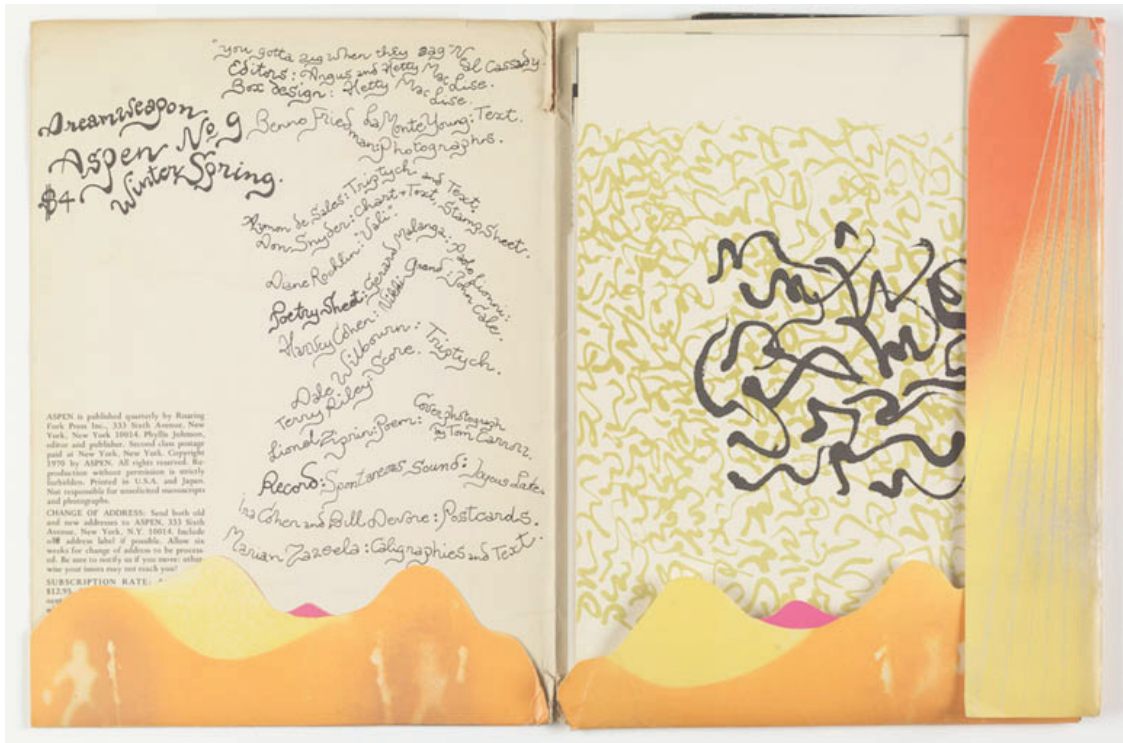 "you gotta zig when they zag" Neal Cassady.
Editors: Angus and Hetty MacLise.
Box design: Hetty MacLise.
Dreamweapon
Aspen No 9
$4 Winter Spring.
Benno Friedman: Photographs.
LaMonte Young: Text.
Aymon de Sales: Triptych and Text.
Don Snyder: Chart + Text, Stamp Sheet.
Diane Rochlin: "Vali".
Poetry Sheet: Gerard Malanga:
Harvey Cohen: Vikki Grand: John Cale.
Dale Wilbourn: Triptych.
Terry Riley: Score.
Lionel Ziprin: Poem:
Cover photograph
by Tom Carroll.
Record: Spontaneous Sound: Joyous Lake.
Ira Cohen and Bill Devore: Postcards.
Marian Zazeela: Caligraphies and Text.
ASPEN is published quarterly by Roaring
Fork Press Inc., 333 Sixth Avenue, New
York, New York 10014. Phyllis Johnson,
editor and publisher. Second class postage
paid at New York, New York. Copyright
1970 by ASPEN. All rights reserved. Re-
production without permission is strictly
forbidden. Printed in U.S.A. and Japan.
Not responsible for unsolicited manuscripts
and photographs.
CHANGE OF ADDRESS: Send both old
and new addresses to ASPEN, 333 Sixth
Avenue, New York, N.Y. 10014. Include
old address label if possible. Allow six
weeks for change of address to be process-
ed. Be sure to notify us if you move; other-
wise your issues may not reach you!
SUBSCRIPTION RATE:
$12.95